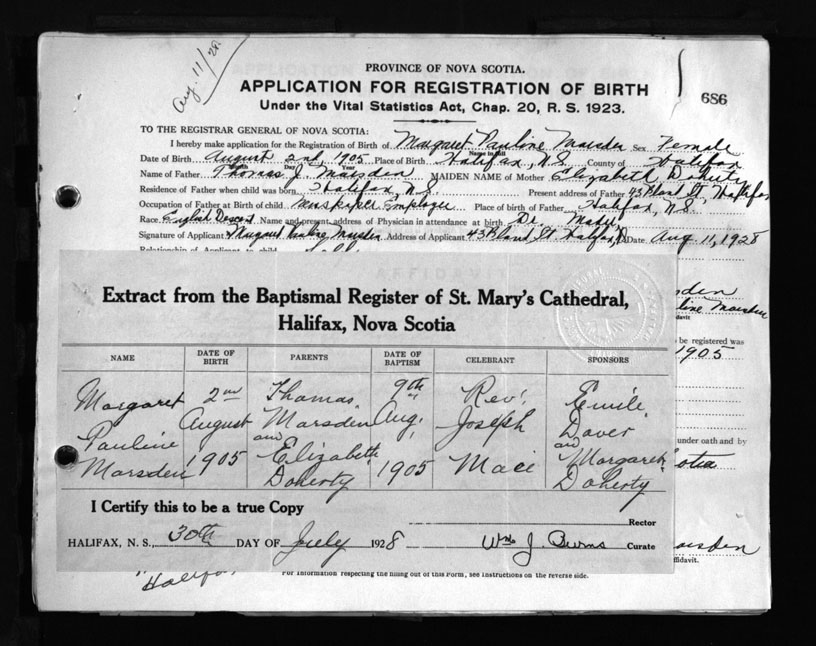 Aug. 11/28
PROVINCE OF NOVA SCOTIA.
APPLICATION FOR REGISTRATION OF BIRTH
686
Under the Vital Statistics Act, Chap. 20, R. S. 1923.
TO THE REGISTRAR GENERAL OF NOVA SCOTIA:
I hereby make application for the Registration of Birth of Margaret Pauline Marsden Sex Female
Name in full
Date of Birth August 2nd, 1905 Place of Birth Halifax, N.S. County of Halifax
Day Year
Name of Father Thomas J. Marsden MAIDEN NAME of Mother Elizabeth Doherty
Residence of Father when child was born Halifax, N.S. Present address of Father 43 Bland St, Halifax
Occupation of Father at Birth of child Newspaper Employee Place of birth of Father Halifax, N.S.
Race English Descent Name and present address of Physician in attendance at birth Dr.
Signature of Applicant Margaret Pauline Marsden Address of Applicant 43 Bland St. Halifax, Date Aug 11, 1928
Relationship of Applicant to child
AFFIDAVIT
Extract from the Baptismal Register of St. Mary's Cathedral,
Halifax, Nova Scotia
NAME DATE OF BIRTH PARENTS DATE OF BAPTISM CELEBRANT SPONSORS
Margaret 2nd Thomas 9th Rev. Emile
Pauline August Marsden Aug. Joseph Daver
and and
Marsden 1905 Elizabeth 1905 Mace Margaret
Doherty Doherty
I Certify this to be a true Copy
Rector
HALIFAX, N. S., 30th DAY OF July 1928 Wm J. Burns Curate
be registered was
1905
under oath and by
Halifax
For information respecting the filling out of this Form, see instructions on the reverse side.